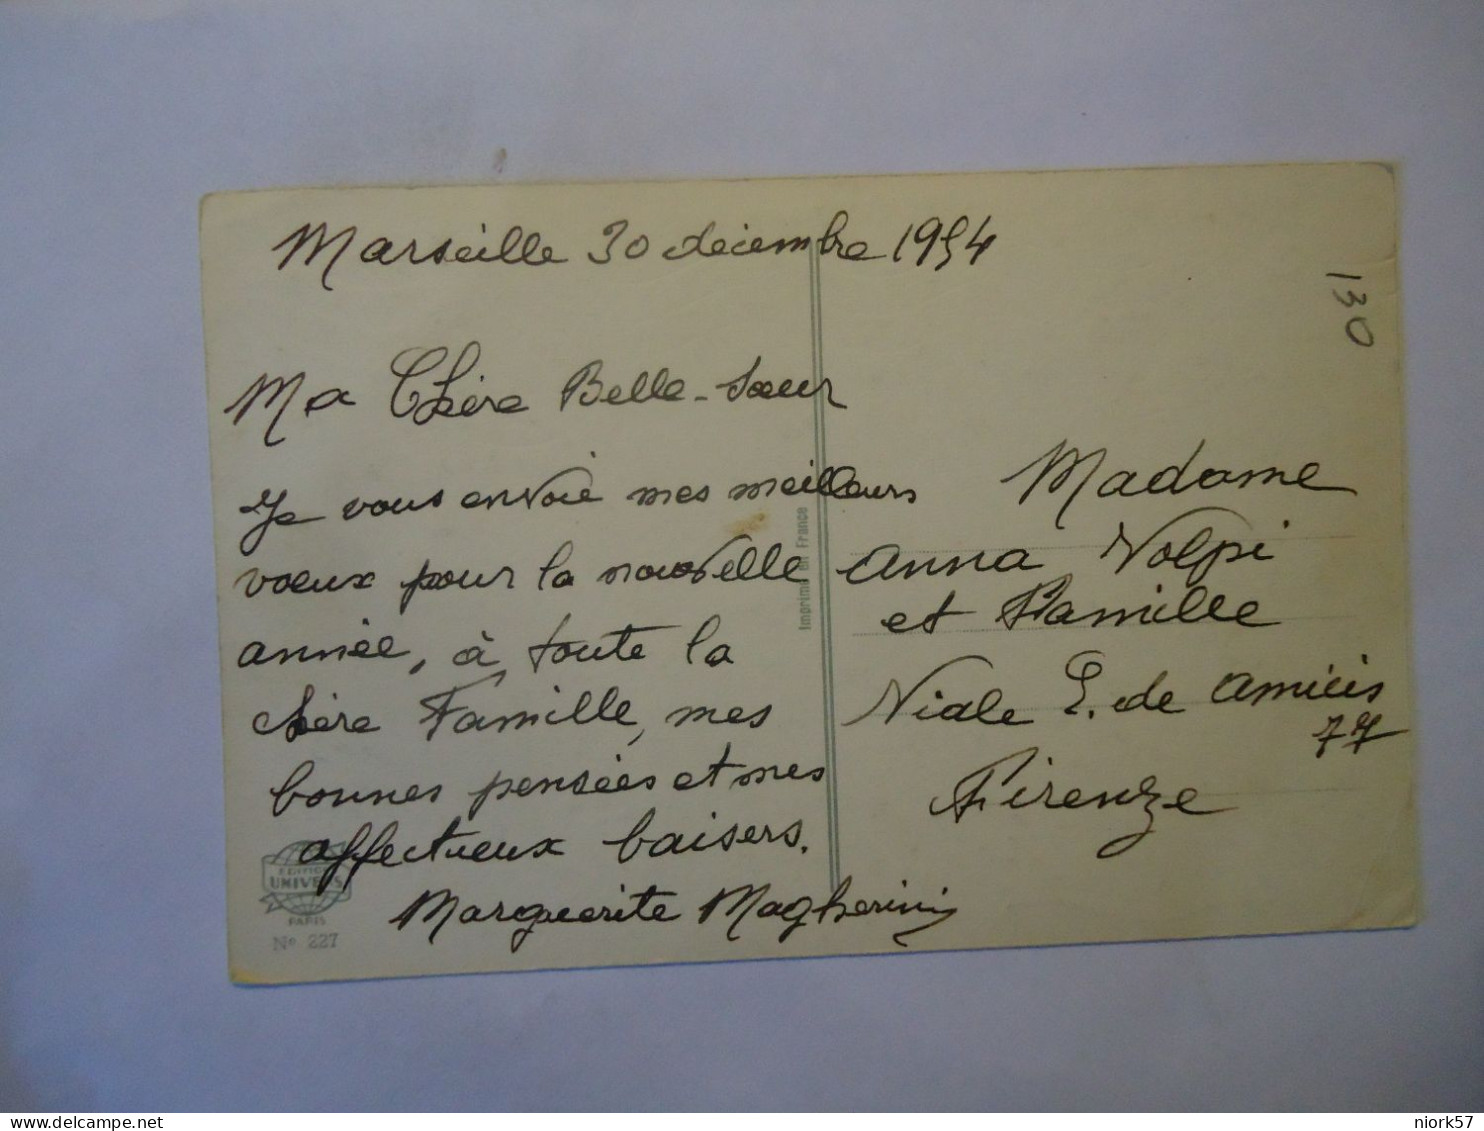 Marseille 30 décembre 1954
130
Ma Chère Belle-Sœur
Je vous envoie mes meilleurs
voeux pour la nouvelle
année, à toute la
chère Famille, mes
bonnes pensées et mes
affectueux baisers.
Marguerite Magherini
Imprimé en France
Madame
Anna Volpi
et Famille
Viale E. de Amicis
77
Firenze
EDITION
UNIVERS
PARIS
No 227
delcampe.net
niork57